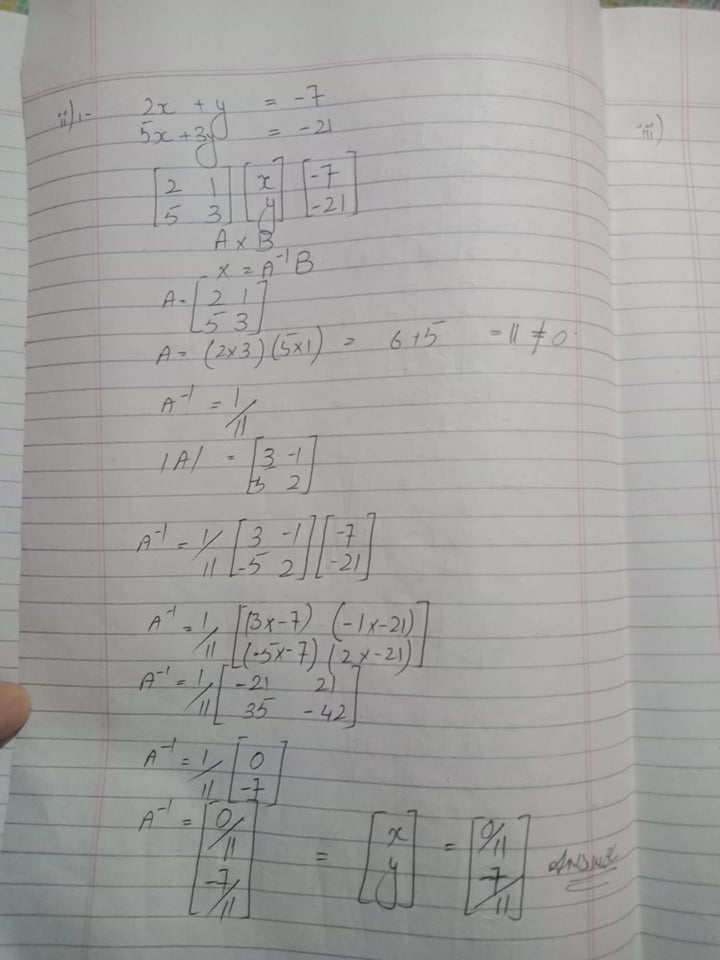 ii):- 2x + y = -7
5x + 3y = -21
[2 1
5 3] [x
y] [-7
-21]
A x B
x = A⁻¹B
A = [2 1
5 3]
A = (2x3) (5x1) = 6+5 = 11 ≠ 0.
A⁻¹ = 1/11
|A| = [3 -1
-5 2]
A⁻¹ = 1/11 [3 -1
-5 2] [-7
-21]
A⁻¹ = 1/11 [(3x-7) (-1x-21)
(-5x-7) (2x-21)]
A⁻¹ = 1/11 [-21 21
35 -42]
A⁻¹ = 1/11 [0
-7]
A⁻¹ = [0/11
-7/11] = [x
y] = [0/11
-7/11] Answer
iii)